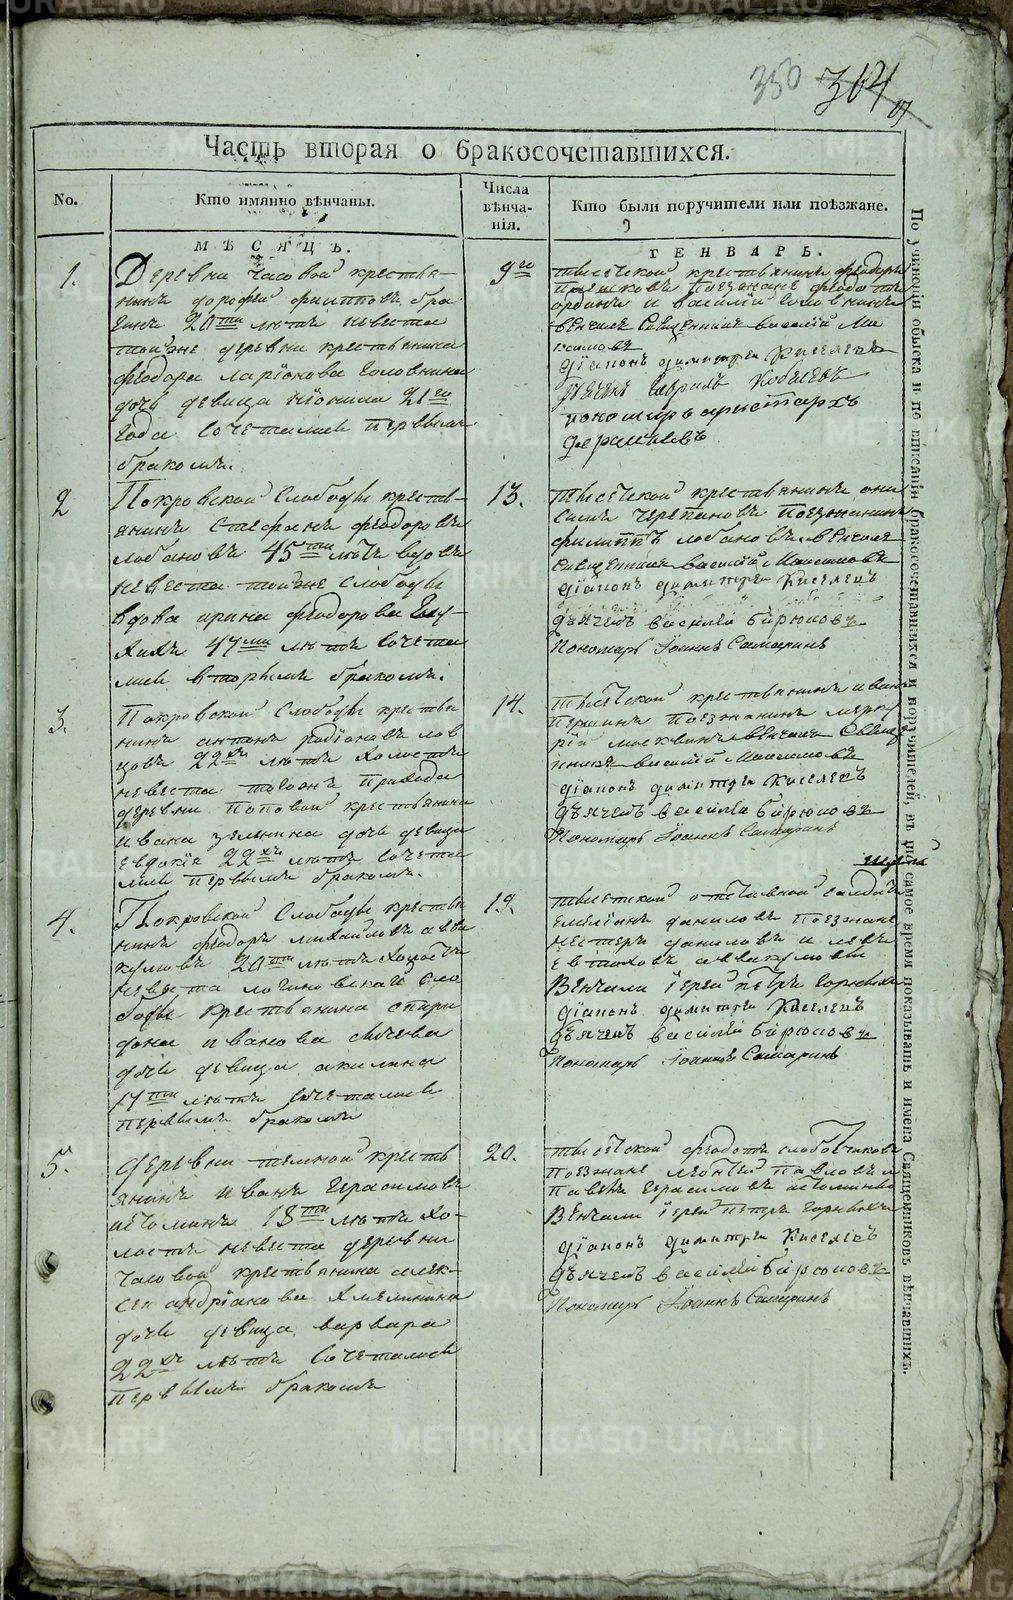 350 304
Часть вторая о бракосочетавшихся.
No.
Кто имянно вѣнчаны.
Числа
вѣнча-
нія.
Кто были поручители или поѣзжане.
МѢСЯЦЪ.
ГЕНВАРЬ.
1.
Деревни Часовой крестья-
нинъ дорофей филипповъ
20ти лѣтъ невѣста
тояже деревни крестьянина
феодора ларіонова Головнина
дочь девица 21го
года Сочетались первымъ
бракомъ.
9го
тысѣцкой крестьянинъ феодоръ
поезжане феодотъ
и василій Головнинъ
венчалъ Священникъ василій
діаконъ димитрей Киселевъ
дьячекъ гавриль Кобелевъ
пономарь аристархъ
2
Покровской Слободы кресть-
янинъ стефанъ феодоровъ
лобановъ 45ти лѣтъ вдовъ
невеста тояже Слободы
вдова ирина феодорова
47ми лѣтъ Сочета
лись вторымъ бракомъ.
13.
тысѣцкой крестьянинъ они
симъ черепановъ поезжанинъ
филиппъ лобановъ венчалъ
священникъ василій
діаконъ димитрей Киселевъ
дьячекъ василей бирюковъ
Пономарь Іоаннъ Самаринъ
3.
Покровской Слободы крестья
нинъ антонъ родіоновъ
22хъ лѣтъ холостъ
невеста тогожъ прихода
деревни поповой крестьянина
ивана дочь девица
евдокія 22хъ лѣтъ Сочета
лись первымъ бракомъ.
14.
тысѣцкой крестьянинъ иванъ
першинъ поезжанинъ мерку
рій москвинъ венчалъ Свяще
нникъ василій
діаконъ димитрей Киселевъ
дьячекъ василей бирюковъ
Пономарь Іоаннъ Самаринъ
4.
Покровской Слободы крестья
нинъ феодоръ михайловъ авва
кумовъ 20ти лѣтъ холостъ
невеста логиновской Сло
боды крестьянина спири
дона иванова
дочь девица акилина
17ти лѣтъ Сочетались
первымъ бракомъ
19.
тысѣцкой отставной солдатъ
емеліанъ даниловъ поезжане
нестеръ даниловъ и левъ
аввакумовы
Венчали Іерей петръ
діаконъ димитрей Киселевъ
дьячекъ василей бирюковъ
Пономарь Іоаннъ Самаринъ
5.
деревни темной кресть
янинъ иванъ герасимовъ
истоминъ 18ти лѣтъ хо-
лостъ невеста деревни
часовой крестьянина алек-
сея андріанова
дочь девица варвара
22хъ лѣтъ Сочетались
первымъ бракомъ
20.
тысѣцкой феодотъ слободчиковъ
поезжане леонтей павловъ и
павелъ герасимовъ истомины
Венчали Іерей петръ
діаконъ димитрей Киселевъ
дьячекъ василей бирюковъ
Пономарь Іоаннъ Самаринъ
По учиненіи обыска и по вписаніи бракосочетавшихся и поручителей, въ то самое время показывать и имена Священниковъ вѣнчавшихъ.
METRIKI.GASO-URAL.RU